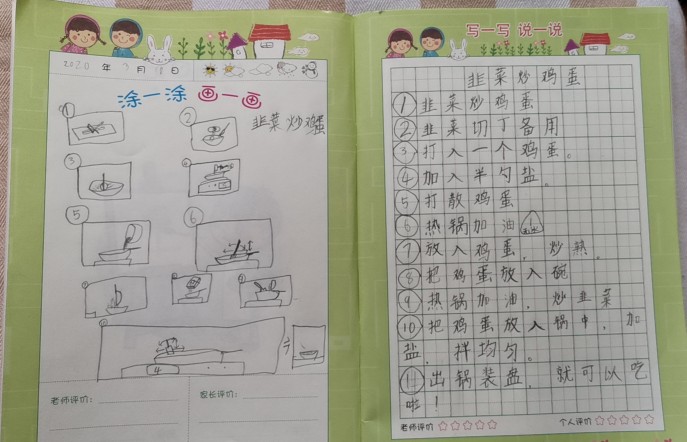 2020年 月 日
涂一涂 画一画
① ② 韭菜炒鸡蛋
③
⑤ ⑥
4
老师评价:
家长评价:
写一写 说一说
韭菜炒鸡蛋
①韭菜炒鸡蛋
②韭菜切丁备用
③打入一个鸡蛋。
④加入半勺盐。
⑤打散鸡蛋
⑥热锅加油
⑦放入鸡蛋,炒熟。
⑧把鸡蛋放入碗
⑨热锅加油,炒韭菜
⑩把鸡蛋放入锅中,加
盐,拌均匀。
⑪出锅装盘,就可以吃
啦!
老师评价☆☆☆☆☆ 个人评价☆☆☆☆☆